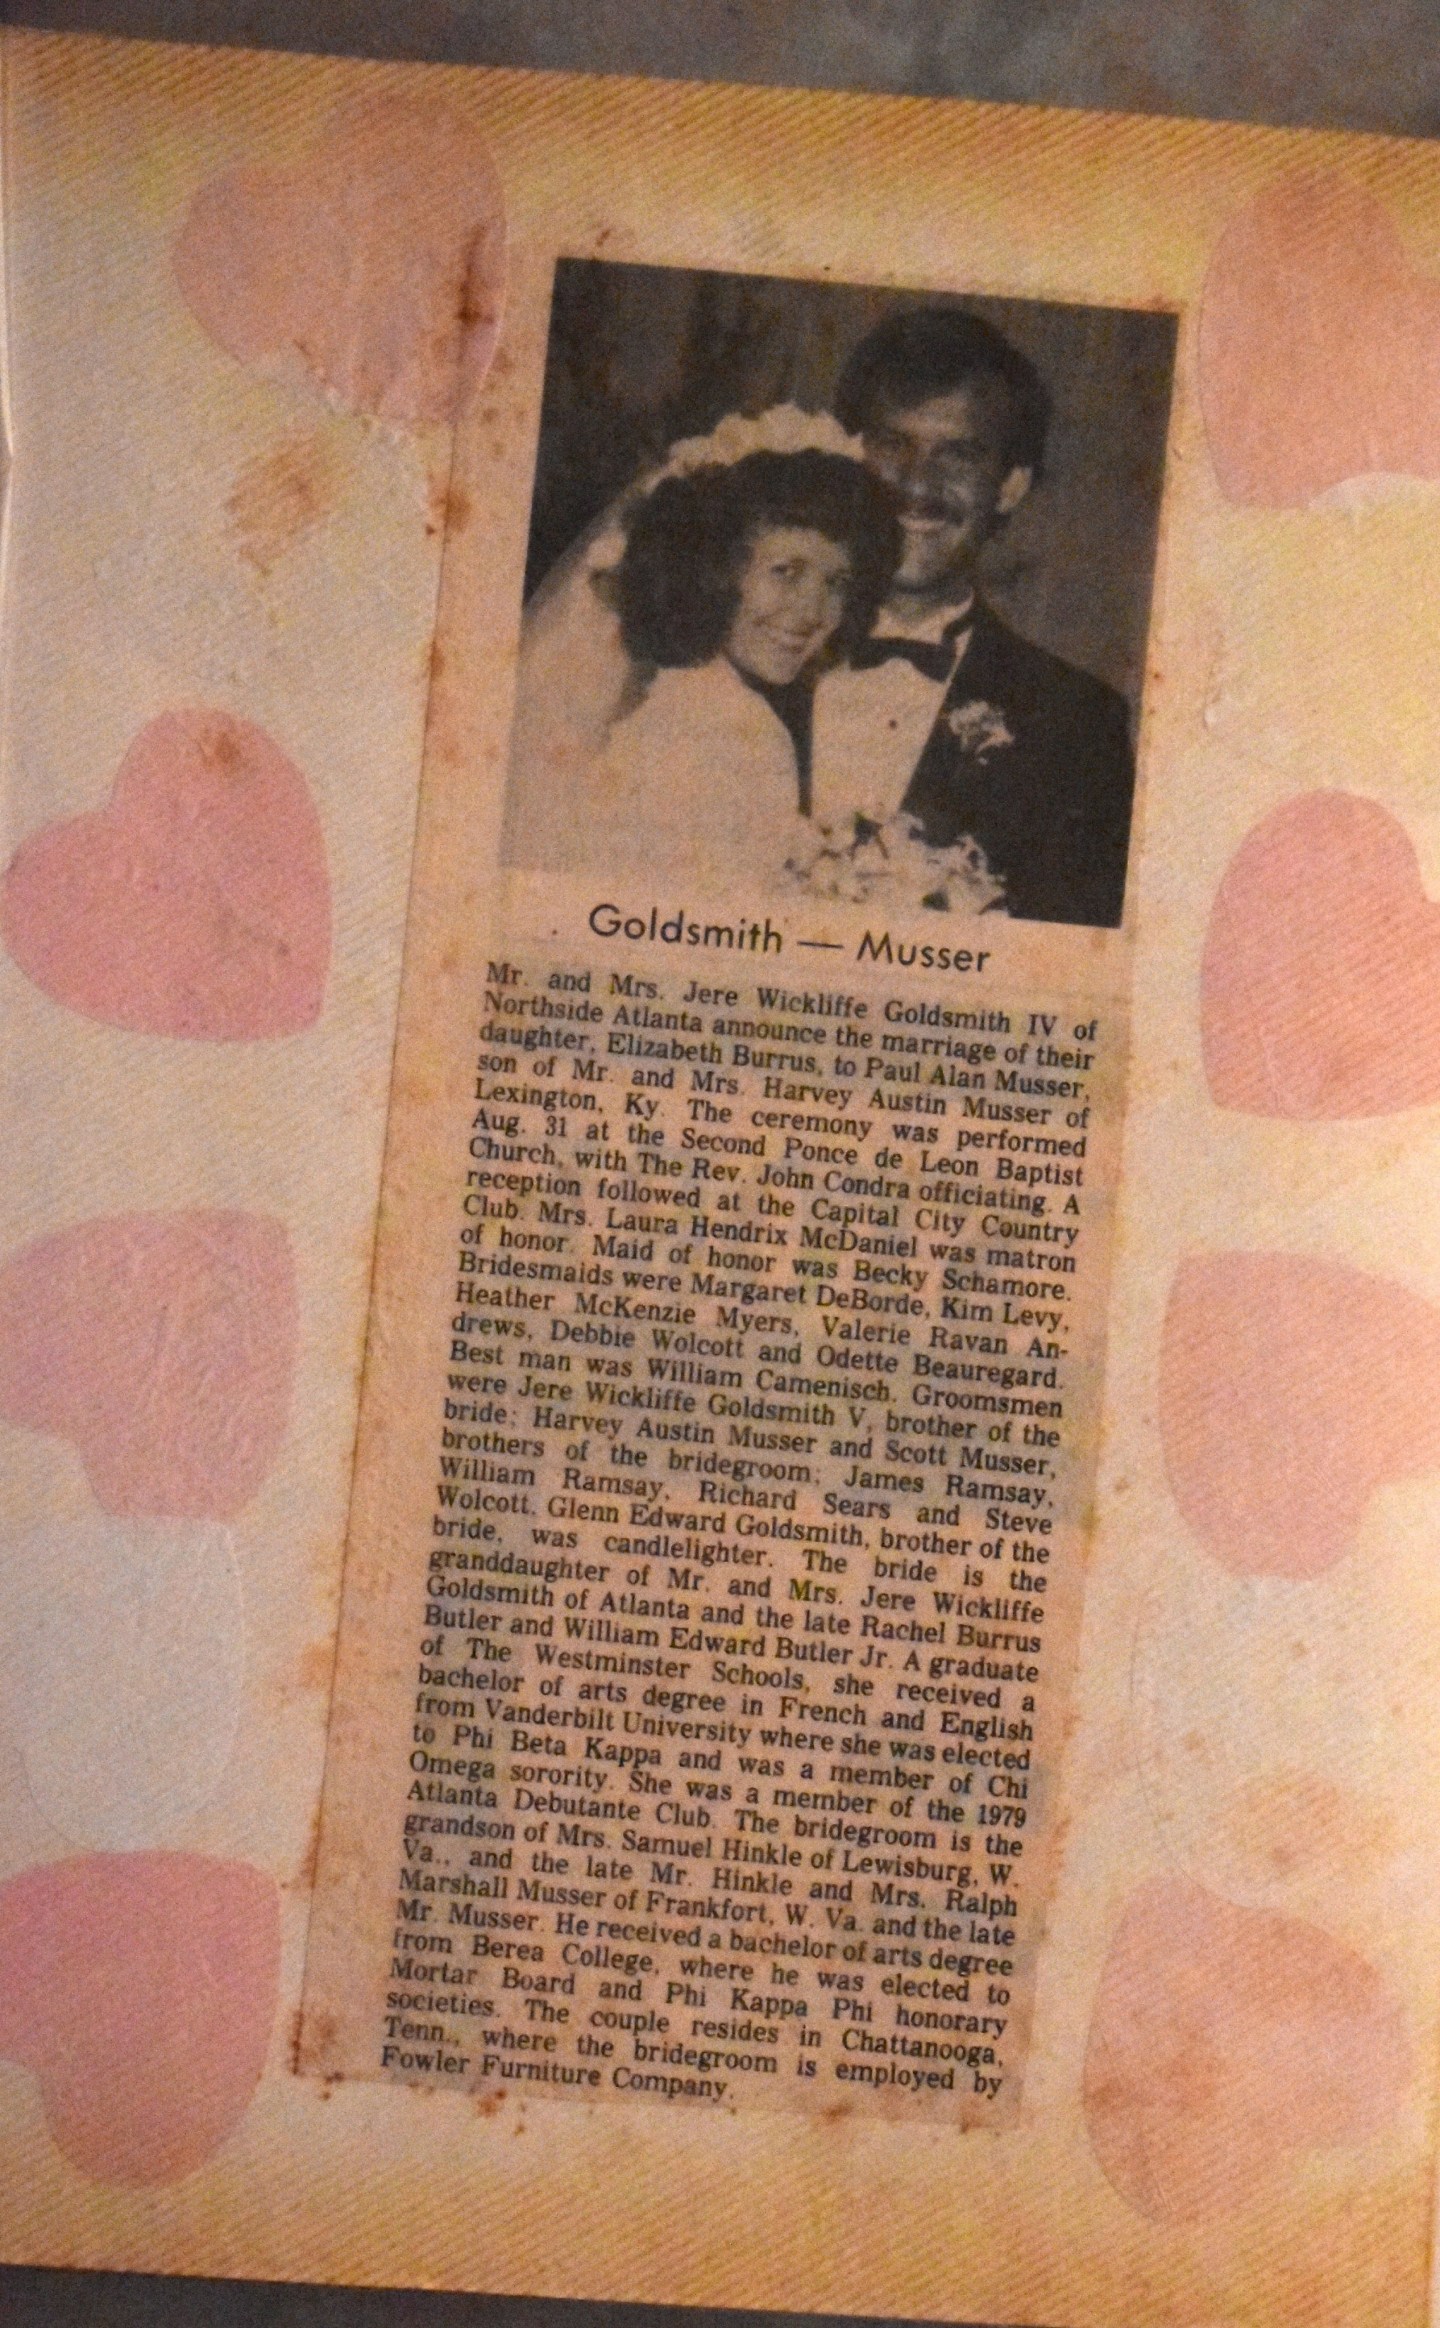 Goldsmith — Musser
Mr. and Mrs. Jere Wickliffe Goldsmith IV of
Northside Atlanta announce the marriage of their
daughter, Elizabeth Burrus, to Paul Alan Musser,
son of Mr. and Mrs. Harvey Austin Musser of
Lexington, Ky. The ceremony was performed
Aug. 31 at the Second Ponce de Leon Baptist
Church, with The Rev. John Condra officiating. A
reception followed at the Capital City Country
Club. Mrs. Laura Hendrix McDaniel was matron
of honor. Maid of honor was Becky Schamore.
Bridesmaids were Margaret DeBorde, Kim Levy,
Heather McKenzie Myers, Valerie Ravan An-
drews, Debbie Wolcott and Odette Beauregard.
Best man was William Camenisch. Groomsmen
were Jere Wickliffe Goldsmith V, brother of the
bride; Harvey Austin Musser and Scott Musser,
brothers of the bridegroom; James Ramsay,
William Ramsay, Richard Sears and Steve
Wolcott. Glenn Edward Goldsmith, brother of the
bride, was candlelighter. The bride is the
granddaughter of Mr. and Mrs. Jere Wickliffe
Goldsmith of Atlanta and the late Rachel Burrus
Butler and William Edward Butler Jr. A graduate
of The Westminster Schools, she received a
bachelor of arts degree in French and English
from Vanderbilt University where she was elected
to Phi Beta Kappa and was a member of Chi
Omega sorority. She was a member of the 1979
Atlanta Debutante Club. The bridegroom is the
grandson of Mrs. Samuel Hinkle of Lewisburg, W.
Va., and the late Mr. Hinkle and Mrs. Ralph
Marshall Musser of Frankfort, W. Va. and the late
Mr. Musser. He received a bachelor of arts degree
from Berea College, where he was elected to
Mortar Board and Phi Kappa Phi honorary
societies. The couple resides in Chattanooga,
Tenn., where the bridegroom is employed by
Fowler Furniture Company.